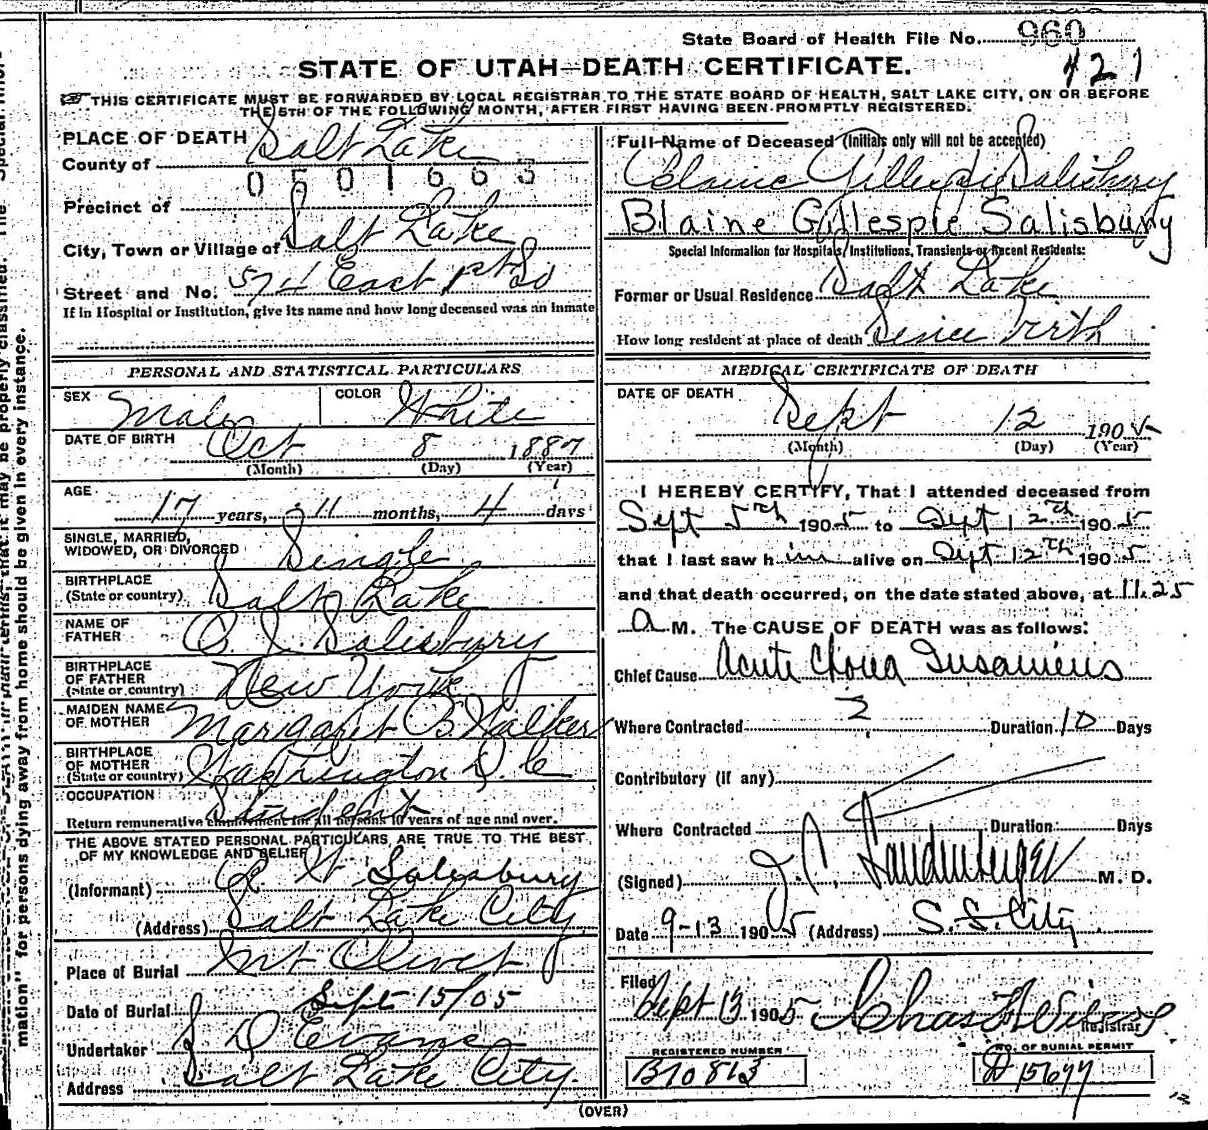 State Board of Health File No. 960
421
STATE OF UTAH—DEATH CERTIFICATE.
THIS CERTIFICATE MUST BE FORWARDED BY LOCAL REGISTRAR TO THE STATE BOARD OF HEALTH, SALT LAKE CITY, ON OR BEFORE
THE 5TH OF THE FOLLOWING MONTH, AFTER FIRST HAVING BEEN PROMPTLY REGISTERED.
PLACE OF DEATH
County of Salt Lake
0501663
Precinct of
City, Town or Village of Salt Lake
Street and No. 574 East 1st So
If in Hospital or Institution, give its name and how long deceased was an inmate
Full Name of Deceased (Initials only will not be accepted)
Blaine Gillespie Salisbury
Blaine Gillespie Salisbury
Special Information for Hospitals, Institutions, Transients or Recent Residents:
Former or Usual Residence Salt Lake
How long resident at place of death Since birth
PERSONAL AND STATISTICAL PARTICULARS
SEX Male COLOR White
DATE OF BIRTH Oct 8 1887
(Month) (Day) (Year)
AGE
17 years, 11 months, 4 days
SINGLE, MARRIED,
WIDOWED, OR DIVORCED Single
BIRTHPLACE
(State or country) Salt Lake
NAME OF
FATHER O. J. Salisbury
BIRTHPLACE
OF FATHER
(State or country) New York
MAIDEN NAME
OF MOTHER Margaret B Walker
BIRTHPLACE
OF MOTHER
(State or country) Washington D.C
OCCUPATION Student
Return remunerative employment for all persons 10 years of age and over.
THE ABOVE STATED PERSONAL PARTICULARS ARE TRUE TO THE BEST
OF MY KNOWLEDGE AND BELIEF
(Informant) Salisbury
(Address) Salt Lake City
Place of Burial Mt Olivet
Date of Burial Sept 15/05
Undertaker S. D Evans
Address Salt Lake City
MEDICAL CERTIFICATE OF DEATH
DATE OF DEATH
Sept 12 1905
(Month) (Day) (Year)
I HEREBY CERTIFY, That I attended deceased from
Sept 5th 1905 to Sept 12th 1905
that I last saw him alive on Sept 12th 1905
and that death occurred, on the date stated above, at 11.25
A M. The CAUSE OF DEATH was as follows:
Chief Cause Acute Chorea Insaniens
Where Contracted ? Duration 10 Days
Contributory (if any)
Where Contracted Duration Days
(Signed) J. C. Landenberger M. D.
Date 9-13 1905 (Address) S. L. City
Filed Sept 13 1905 Chas
Registrar
REGISTERED NUMBER
B10813
NO. OF BURIAL PERMIT
D 15677
(OVER)
mation" for persons dying away from home should be given in every instance.